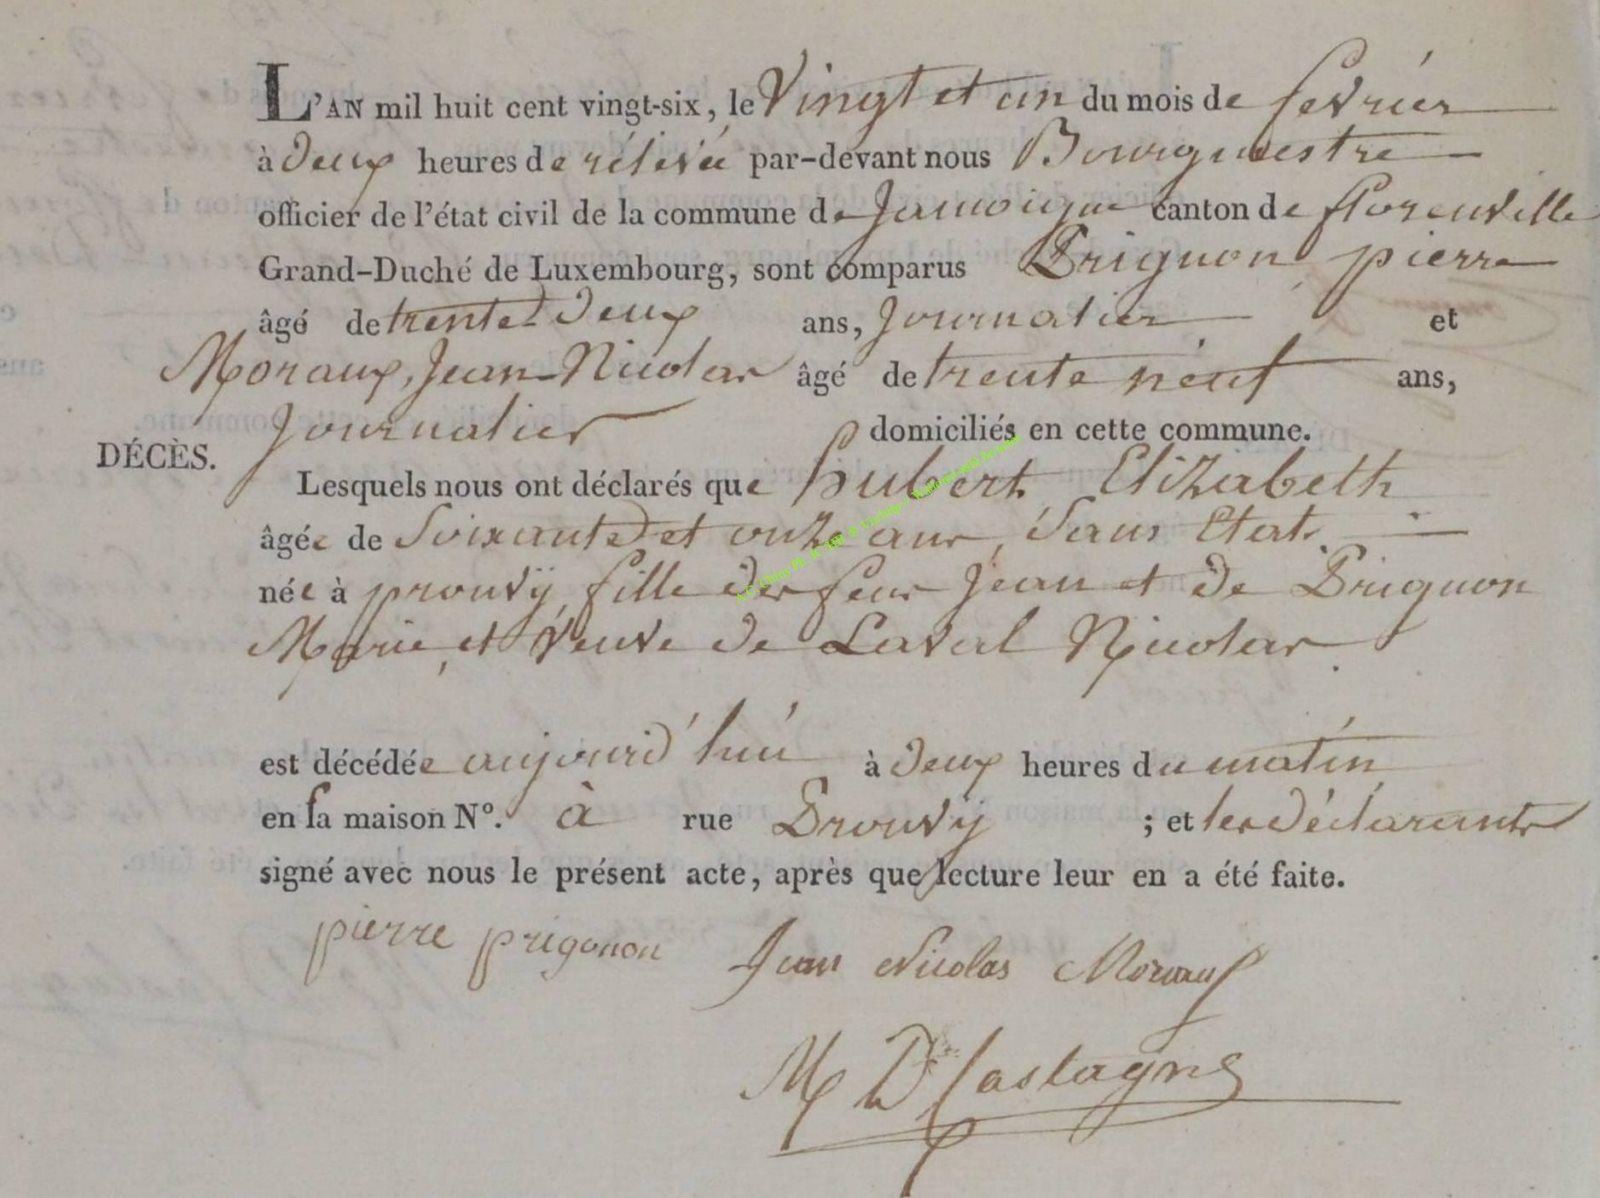 L'AN mil huit cent vingt-six, le Vingt et un du mois de fevrier
à deux heures de rélevée par-devant nous Bourgmestre
officier de l'état civil de la commune de Jamoigne canton de florenville
Grand-Duché de Luxembourg, sont comparus Prignon pierre
âgé de trente deux ans, Journalier et
Moraux, Jean-Nicolas âgé de trente neuf ans,
Journalier domiciliés en cette commune.
DÉCÈS.
Lesquels nous ont déclarés que hubert Elizabeth
âgée de Soixante et onze ans, Sans Etat.
née à prouvÿ, fille des feus Jean et de Prignon
Marie, et Veuve de Laval Nicolas.
est décédée aujourd'hui à deux heures du matin
en sa maison N°. à rue Prouvÿ ; et les déclarants
signé avec nous le présent acte, après que lecture leur en a été faite.
pierre prigonon Jean Nicolas Moraux
M D Castagne